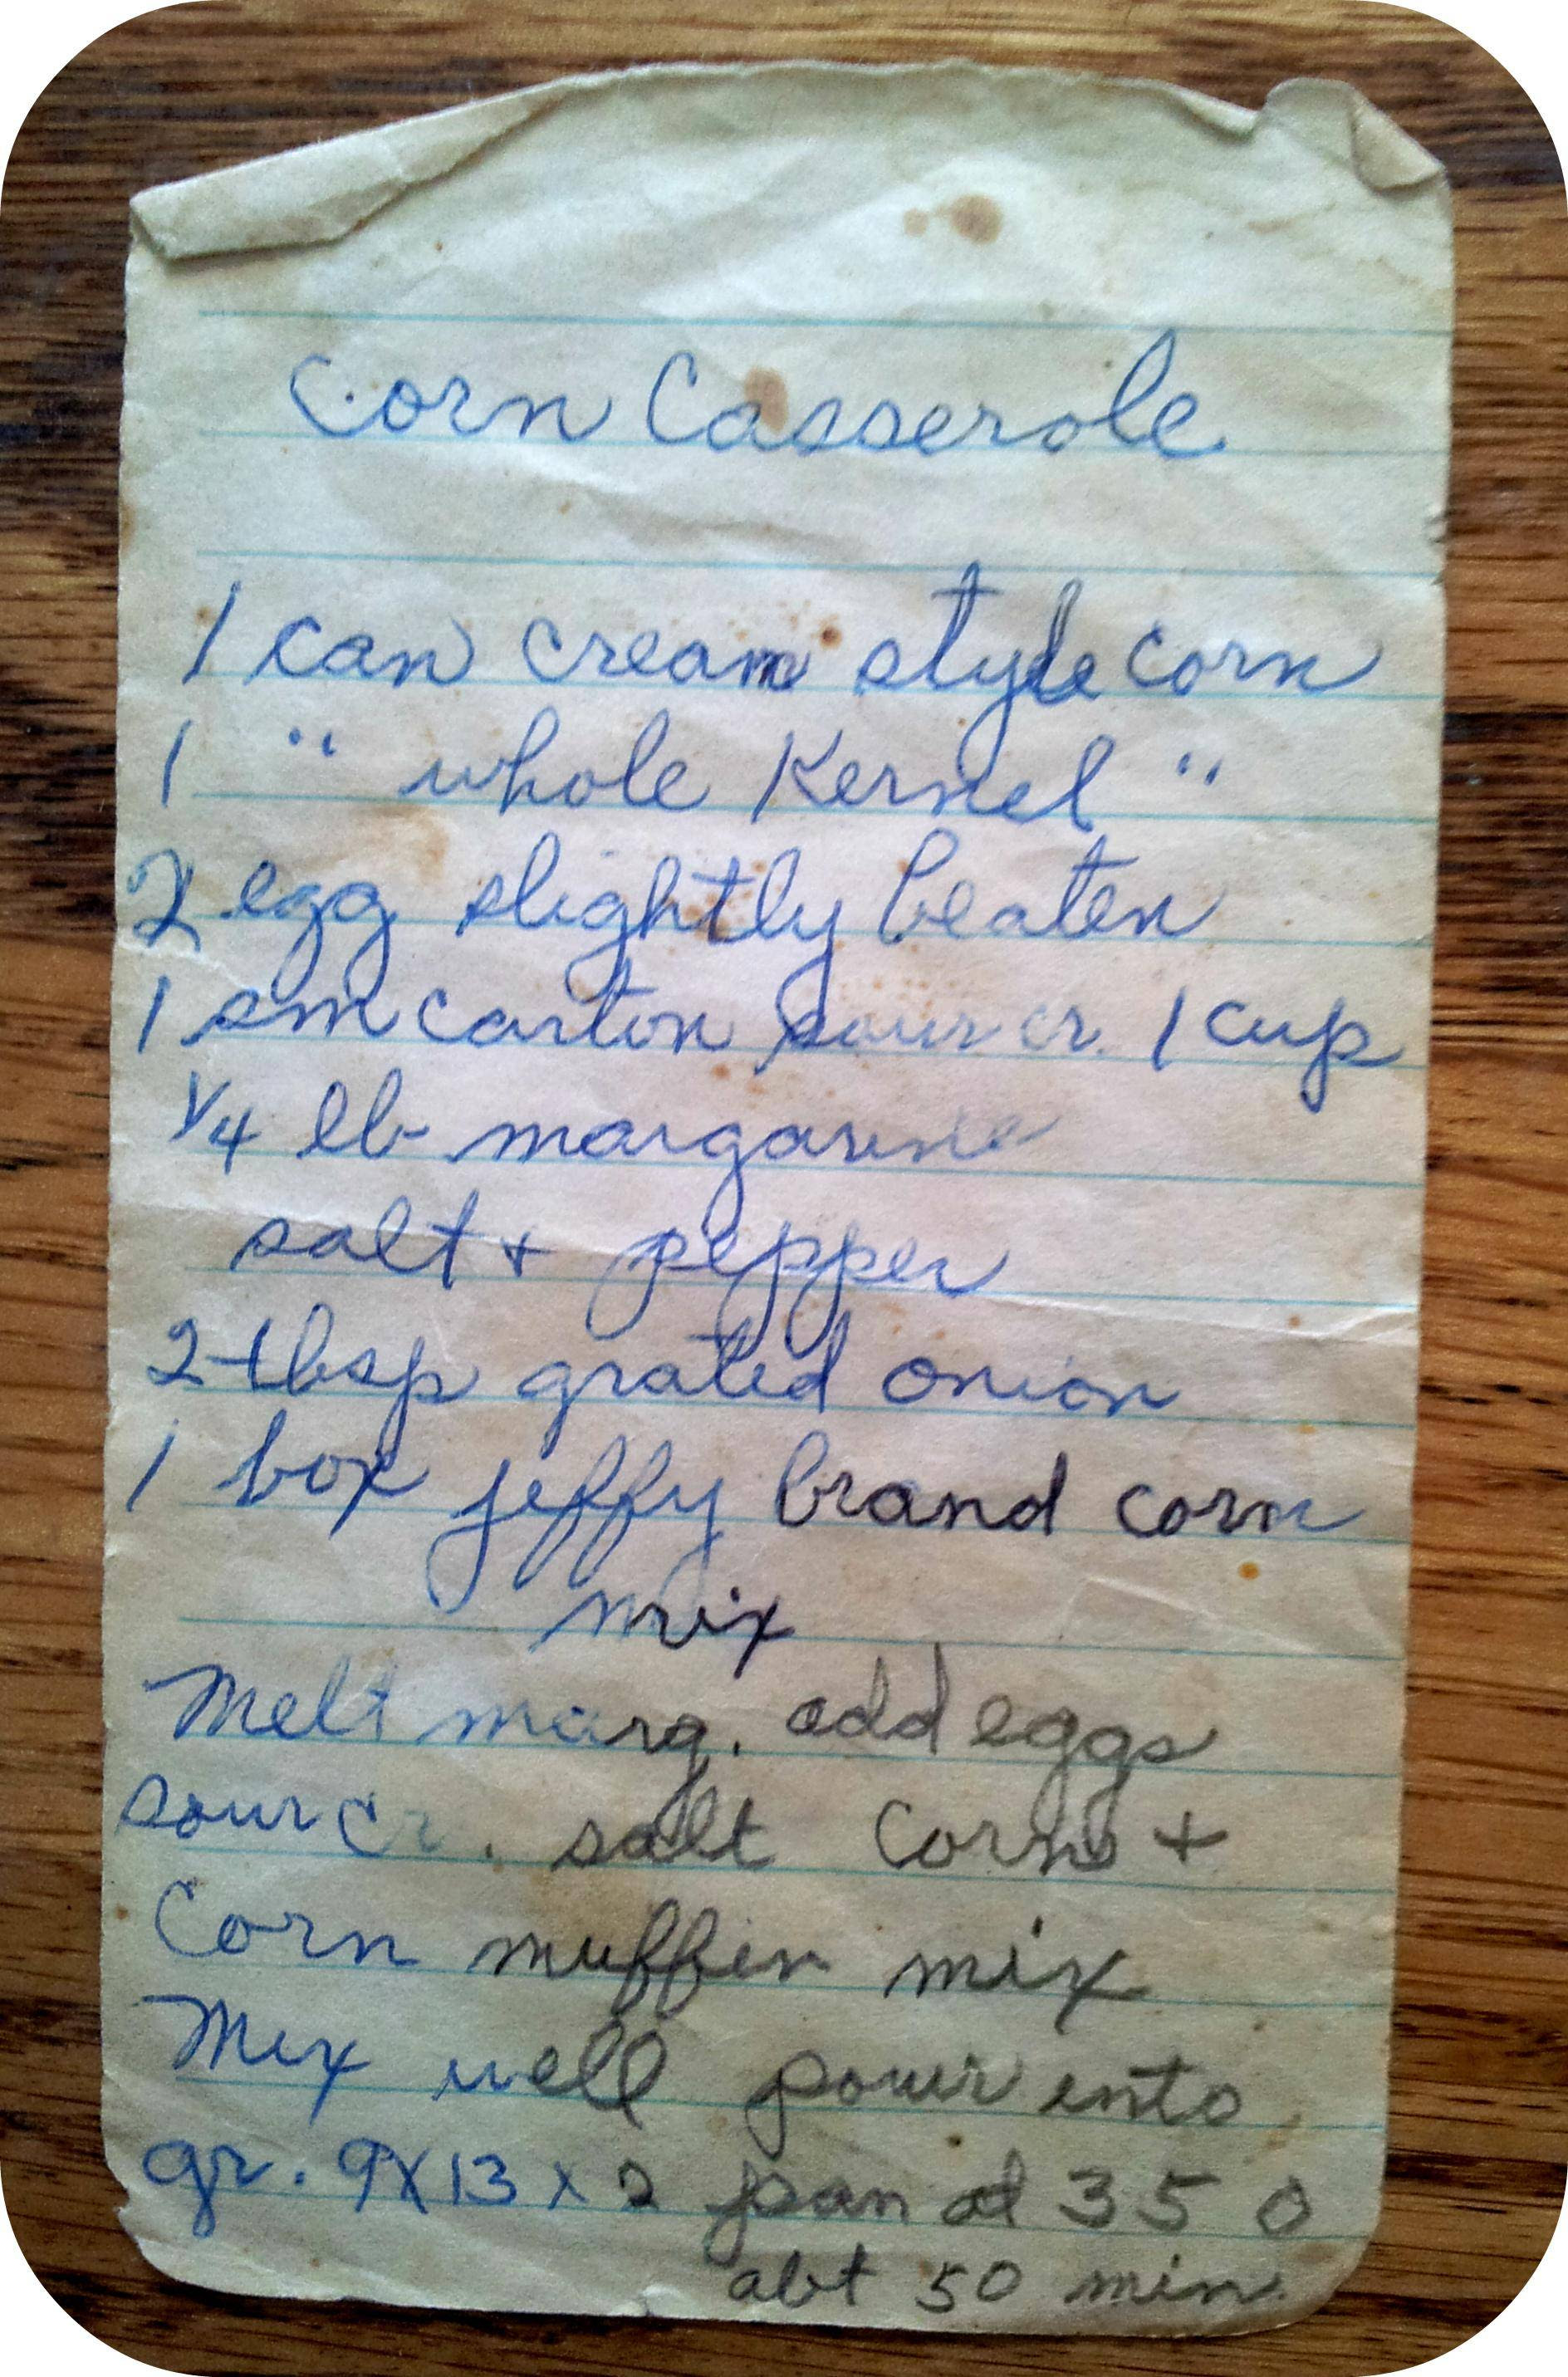 Corn Casserole
1 can cream style corn
1 " whole Kernel "
2 egg slightly beaten
1 sm carton sour cr. 1 cup
1/4 lb margarine
salt + pepper
2 tbsp grated onion
1 box jeffy brand corn
mix
Melt marg. add eggs
sour cr. salt corns +
Corn muffin mix
Mix well pour into
gr. 9X13 x 2 pan at 350
abt 50 min.